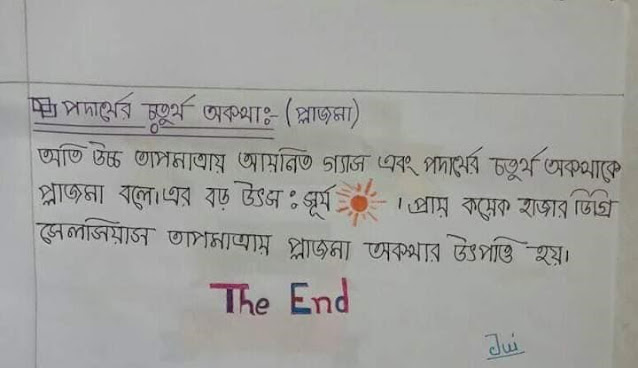 পদার্থের চতুর্থ অবস্থাঃ- (প্লাজমা)
অতি উচ্চ তাপমাত্রায় আয়নিত গ্যাস এবং পদার্থের চতুর্থ অবস্থাকে
প্লাজমা বলে। এর বড় উৎস : সূর্য । প্রায় কয়েক হাজার ডিগ্রি
সেলসিয়াস তাপমাত্রায় প্লাজমা অবস্থার উৎপত্তি হয়।
The End
Jui